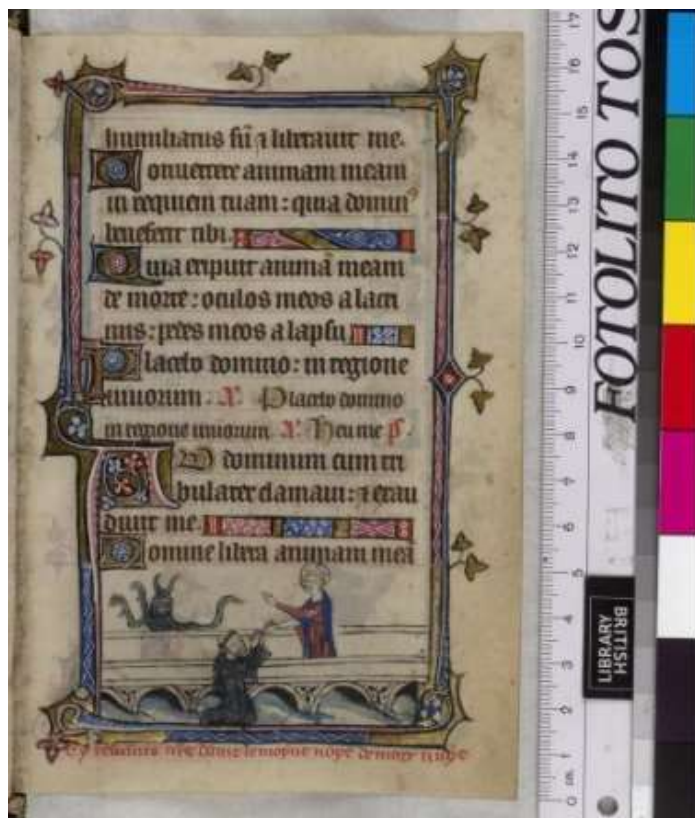 humiliatus sū ⁊ liberauit me.
Conuertere animam meam
in requiem tuam : quia domin⁹
benefecit tibi.
Quia eripuit animā meam
de morte : oculos meos a lacri
mis : pedes meos a lapsu
Placebo domino : in regione
uiuorum. Placebo domino
in regione uiuorum. Heu me p̄.
AD dominum cum tri
bularer clamaui : ⁊ exau
diuit me.
Domine libera animam meā
Cy nre dame le moyne
FOTOLITO TOS
BRITISH
LIBRARY
cm 0 1 2 3 4 5 6 7 8 9 10 11 12 13 14 15 16 17